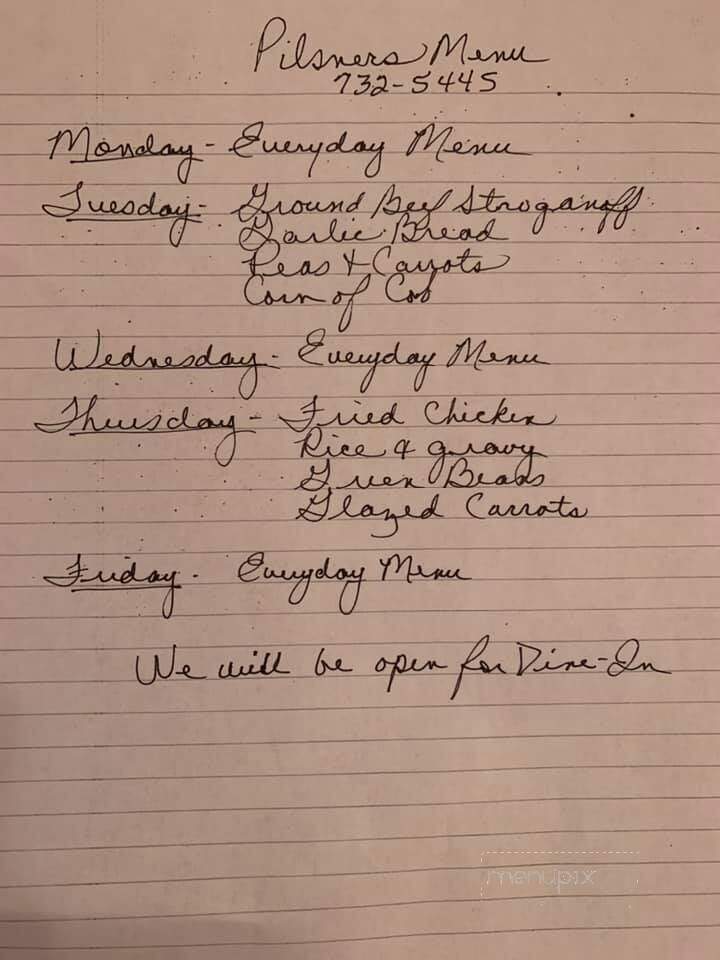 Pilsners Menu
732-5445
Monday - Everyday Menu
Tuesday - Ground Beef Stroganoff
Garlic Bread
Peas & Carrots
Corn of Cob
Wednesday - Everyday Menu
Thursday - Fried Chicken
Rice & gravy
Green Beans
Glazed Carrots
Friday - Everyday Menu
We will be open for Dine-In
menupix